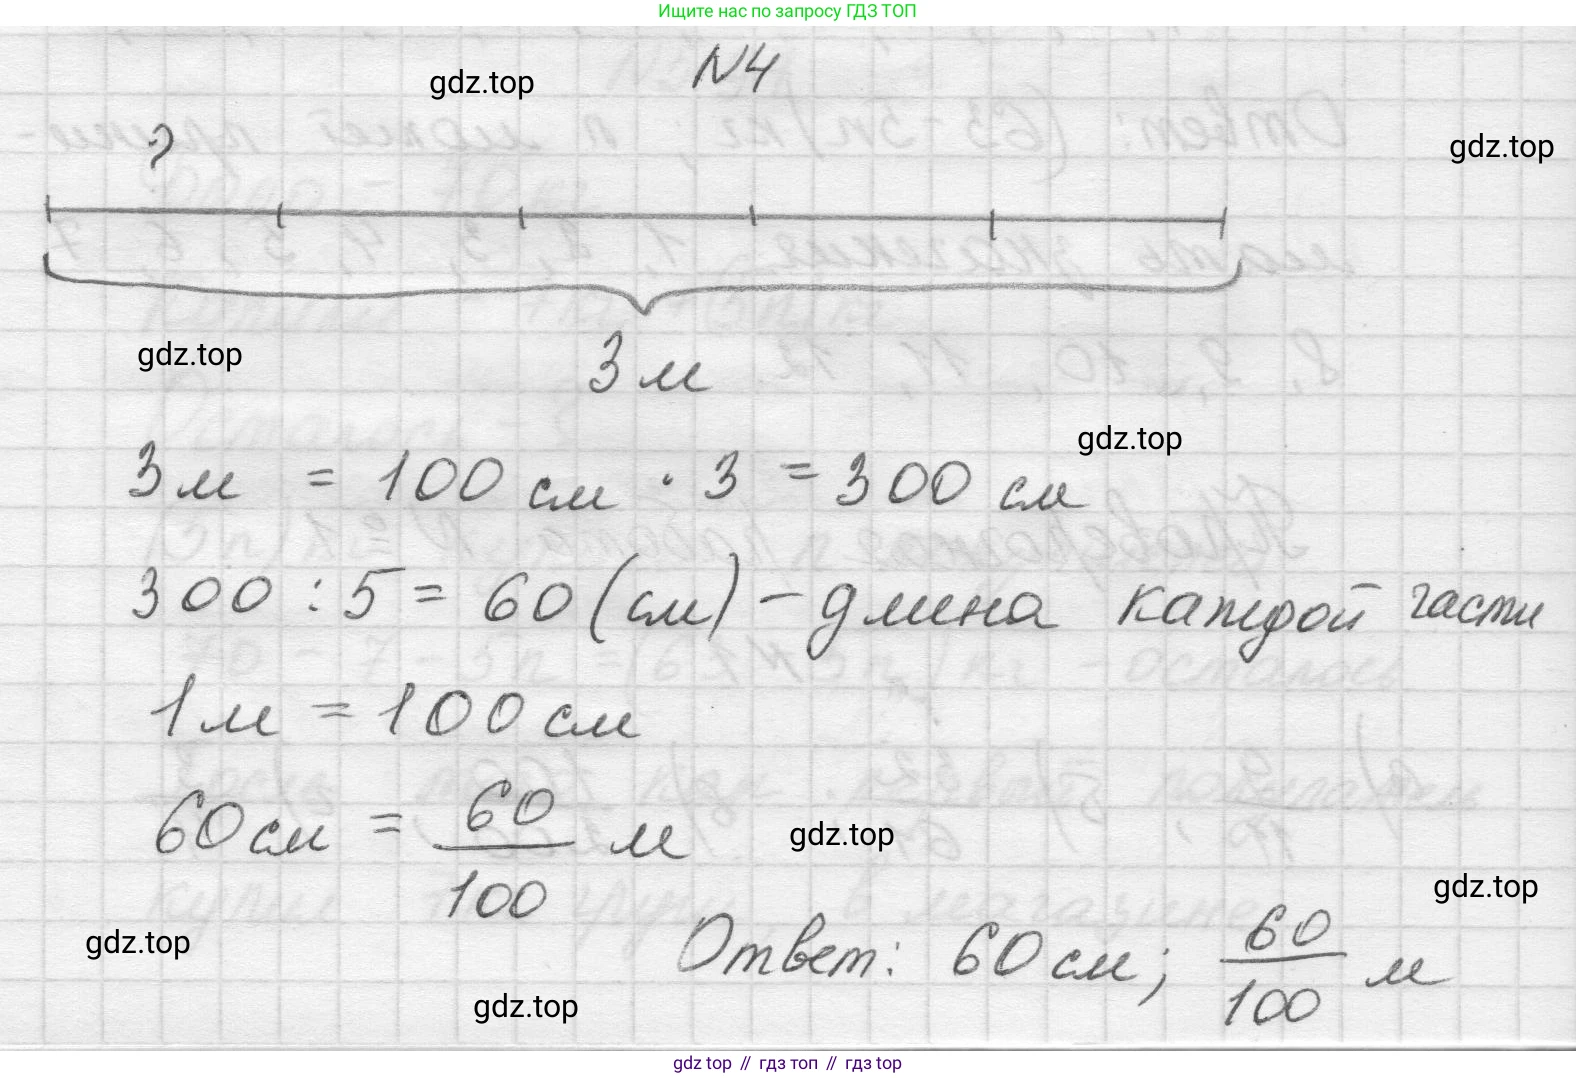 Ищите нас по запросу ГДЗ ТОП
N4
gdz.top
?
gdz.top
3 м
gdz.top
gdz.top
3 м = 100 см · 3 = 300 см
300 : 5 = 60 (см) – длина каждой части
1 м = 100 см
60 см = 60/100 м
gdz.top
gdz.top
gdz.top
Ответ: 60 см; 60/100 м
gdz.top
gdz.top // гдз топ // гдз top